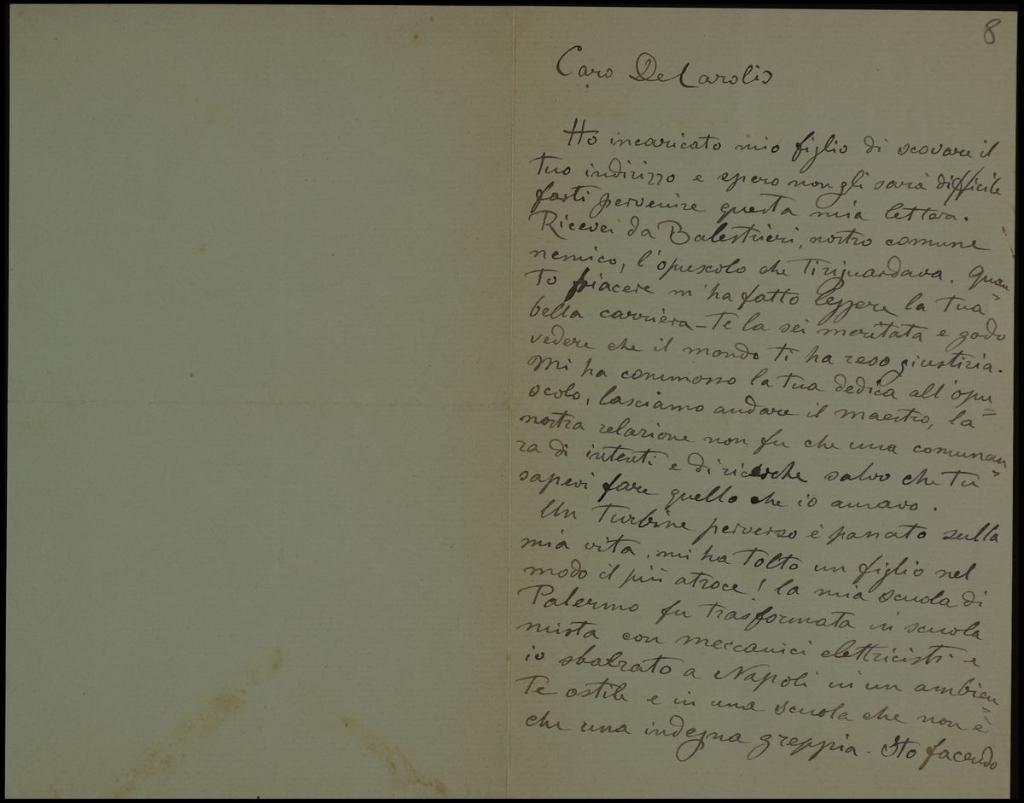 8
Caro De Carolis
Ho incaricato mio figlio di scovare il
tuo indirizzo e spero non gli sarà difficile
farti pervenire questa mia lettera.
Ricevei da Balestrieri, nostro comune
nemico, l'opuscolo che ti riguardava. Quan=
to piacere m'ha fatto leggere la tua
bella carriera - Te la sei meritata e godo
vedere che il mondo ti ha reso giustizia.
Mi ha commosso la tua dedica all'opu=
scolo, lasciamo andare il maestro, la
nostra relazione non fu che una comunan=
za di intenti e di ricerche salvo che tu
sapevi fare quello che io amavo.
Un turbine perverso è passato sulla
mia vita, mi ha tolto un figlio nel
modo il più atroce! la mia scuola di
Palermo fu trasformata in scuola
mista con meccanici elettricisti e
io sbalzato a Napoli in un ambien=
te ostile e in una scuola che non è
che una indegna greppia. Sto facendo